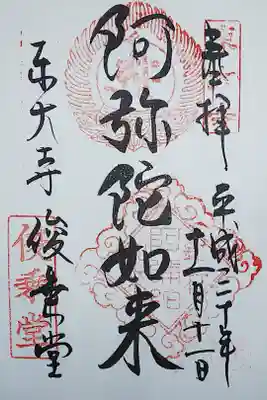 奉拝
平成二十年
十一月十一日
阿弥陀如来
東大寺
俊乗堂
俊乗堂